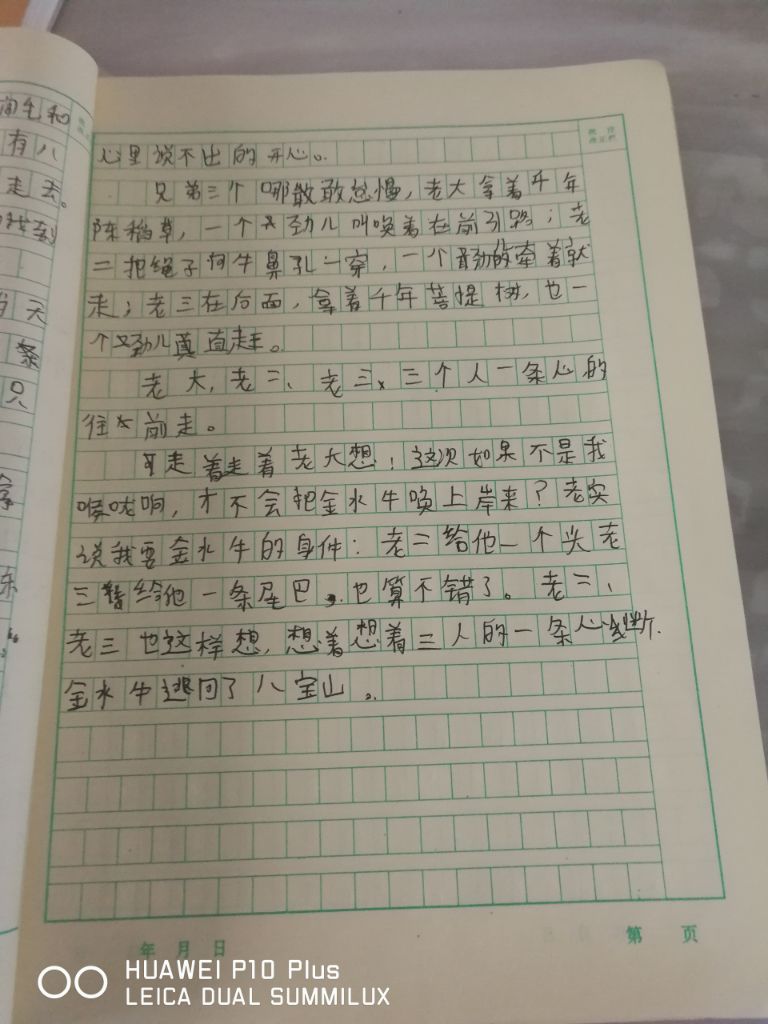 心里说不出的开心。
兄弟三个哪敢怠慢，老大拿着千年
陈稻草，一个劲儿叫唤着在前引路；老
二把绳子向牛鼻孔一穿，一个劲的牵着就
走；老三在后面，拿着千年菩提树，也一
个劲儿直赶。
老大，老二、老三，三个人一条心的
往前走。
可走着走着老大想：这次如果不是我
喉咙响，才不会把金水牛唤上岸来？老实
说我要金水牛的身件：老二给他一个头老
三给他一条尾巴，也算不错了。老二、
老三也这样想，想着想着三人的一条心
金水牛逃回了八宝山。
闰毛和
有八
走去。
找到
天
条
只
年 月 日
第 页
HUAWEI P10 Plus
LEICA DUAL SUMMILUX